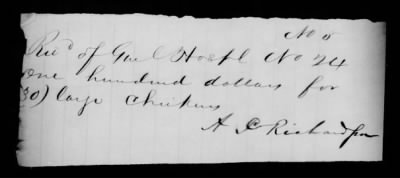 No 5
Rec'd of Gen'l Hosp'l No 24
One hundred dollars for
30) large chickens
A C Richardson